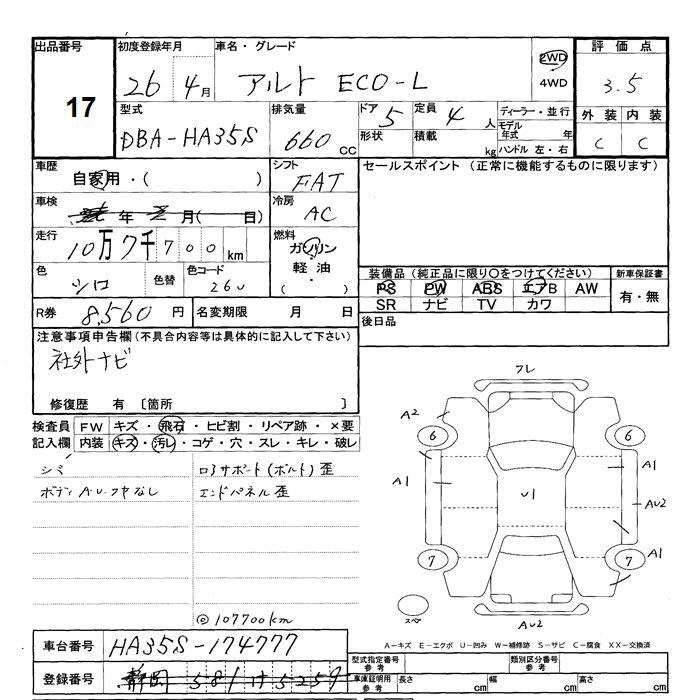 出品番号 初度登録年月 車名・グレード 評価点
17 26 4月 アルト ECO-L 2WD 4WD 3.5
型式 排気量 ドア 5 定員 4人 ディーラー・並行 外装 内装
DBA-HA35S 660 CC 形状 積載 kg モデル年式 年 C C
ハンドル 左・右
車歴 シフト セールスポイント (正常に機能するものに限ります)
自家用・( ) FAT
車検 年 月( 日) 冷房 AC
走行 10万7千700km 燃料 ガソリン 軽油 ( ・ )
色 シロ 色替 色コード 26U
装備品 (純正品に限り○をつけてください) 新車保証書
PS PW ABS エアB AW 有・無
SR ナビ TV カワ
R券 8,560円 名変期限 月 日 後日品
注意事項申告欄 (不具合内容等は具体的に記入して下さい)
社外ナビ
修復歴 有 〔箇所 〕
検査員 FW キズ・飛石・ヒビ割・リペア跡・×要
記入欄 内装 キズ・汚レ・コゲ・穴・スレ・キレ・破レ
シミ ロアサポート(ボルト)歪
ボディ A・U・フヤなし エンドパネル歪
◎107700km
フレ
A2
6 6
A1 A1
U1
AU2
7 7 A1
スペア
AU2
A-キズ E-エクボ U-凹み W-補修跡 S-サビ C-腐食 XX-交換済
車台番号 HA35S-174777
登録番号 静岡 581 け 5259
型式指定番号 参考 類別区分番号 参考
車庫証明用 参考 長さ cm 幅 cm 高さ cm